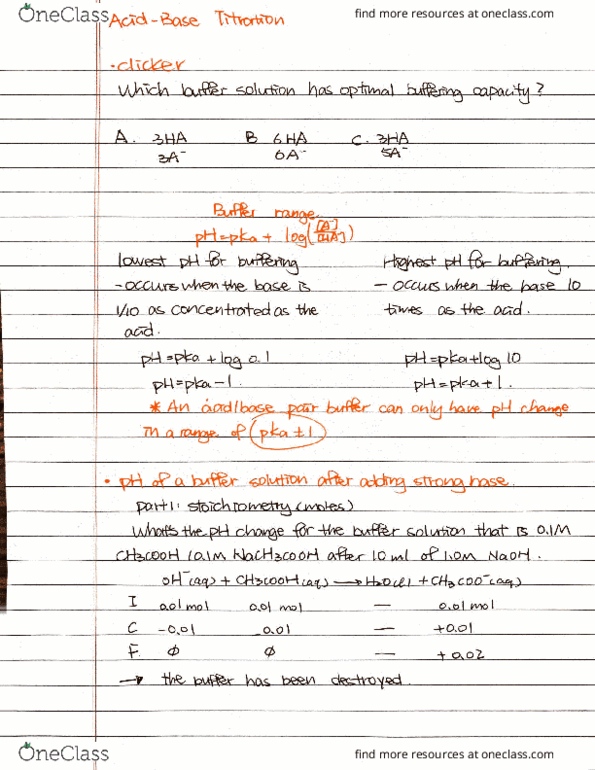 OneClass
find more resources at oneclass.com
Acid-Base Titration
•clicker
Which buffer solution has optimal buffering capacity?
A. 3HA B 6HA C. 3HA
3A⁻ 6A⁻ 5A⁻
Buffer range
pH=pka + log([A⁻]/[HA])
lowest pH for buffering Highest pH for buffering.
-occurs when the base is - occurs when the base 10
1/10 as concentrated as the times as the acid.
acid.
pH=pka + log 0.1 pH=pka+log 10
pH=pka-1. pH=pka+1.
* An acid/base pair buffer can only have pH change
in a range of pka ±1
• pH of a buffer solution after adding strong base.
part1: stoichrometry (moles)
What's the pH change for the buffer solution that is 0.1M
CH3COOH /0.1M NaCH3COOH after 10 ml of 1.0M NaOH.
OH⁻(aq) + CH3COOH(aq) → H2O(l) + CH3COO⁻(aq)
I 0.01 mol 0.01 mol — 0.01 mol
C -0.01 0.01 — +0.01
F. ϕ ϕ — +0.02
→ the buffer has been destroyed.
OneClass
find more resources at oneclass.com